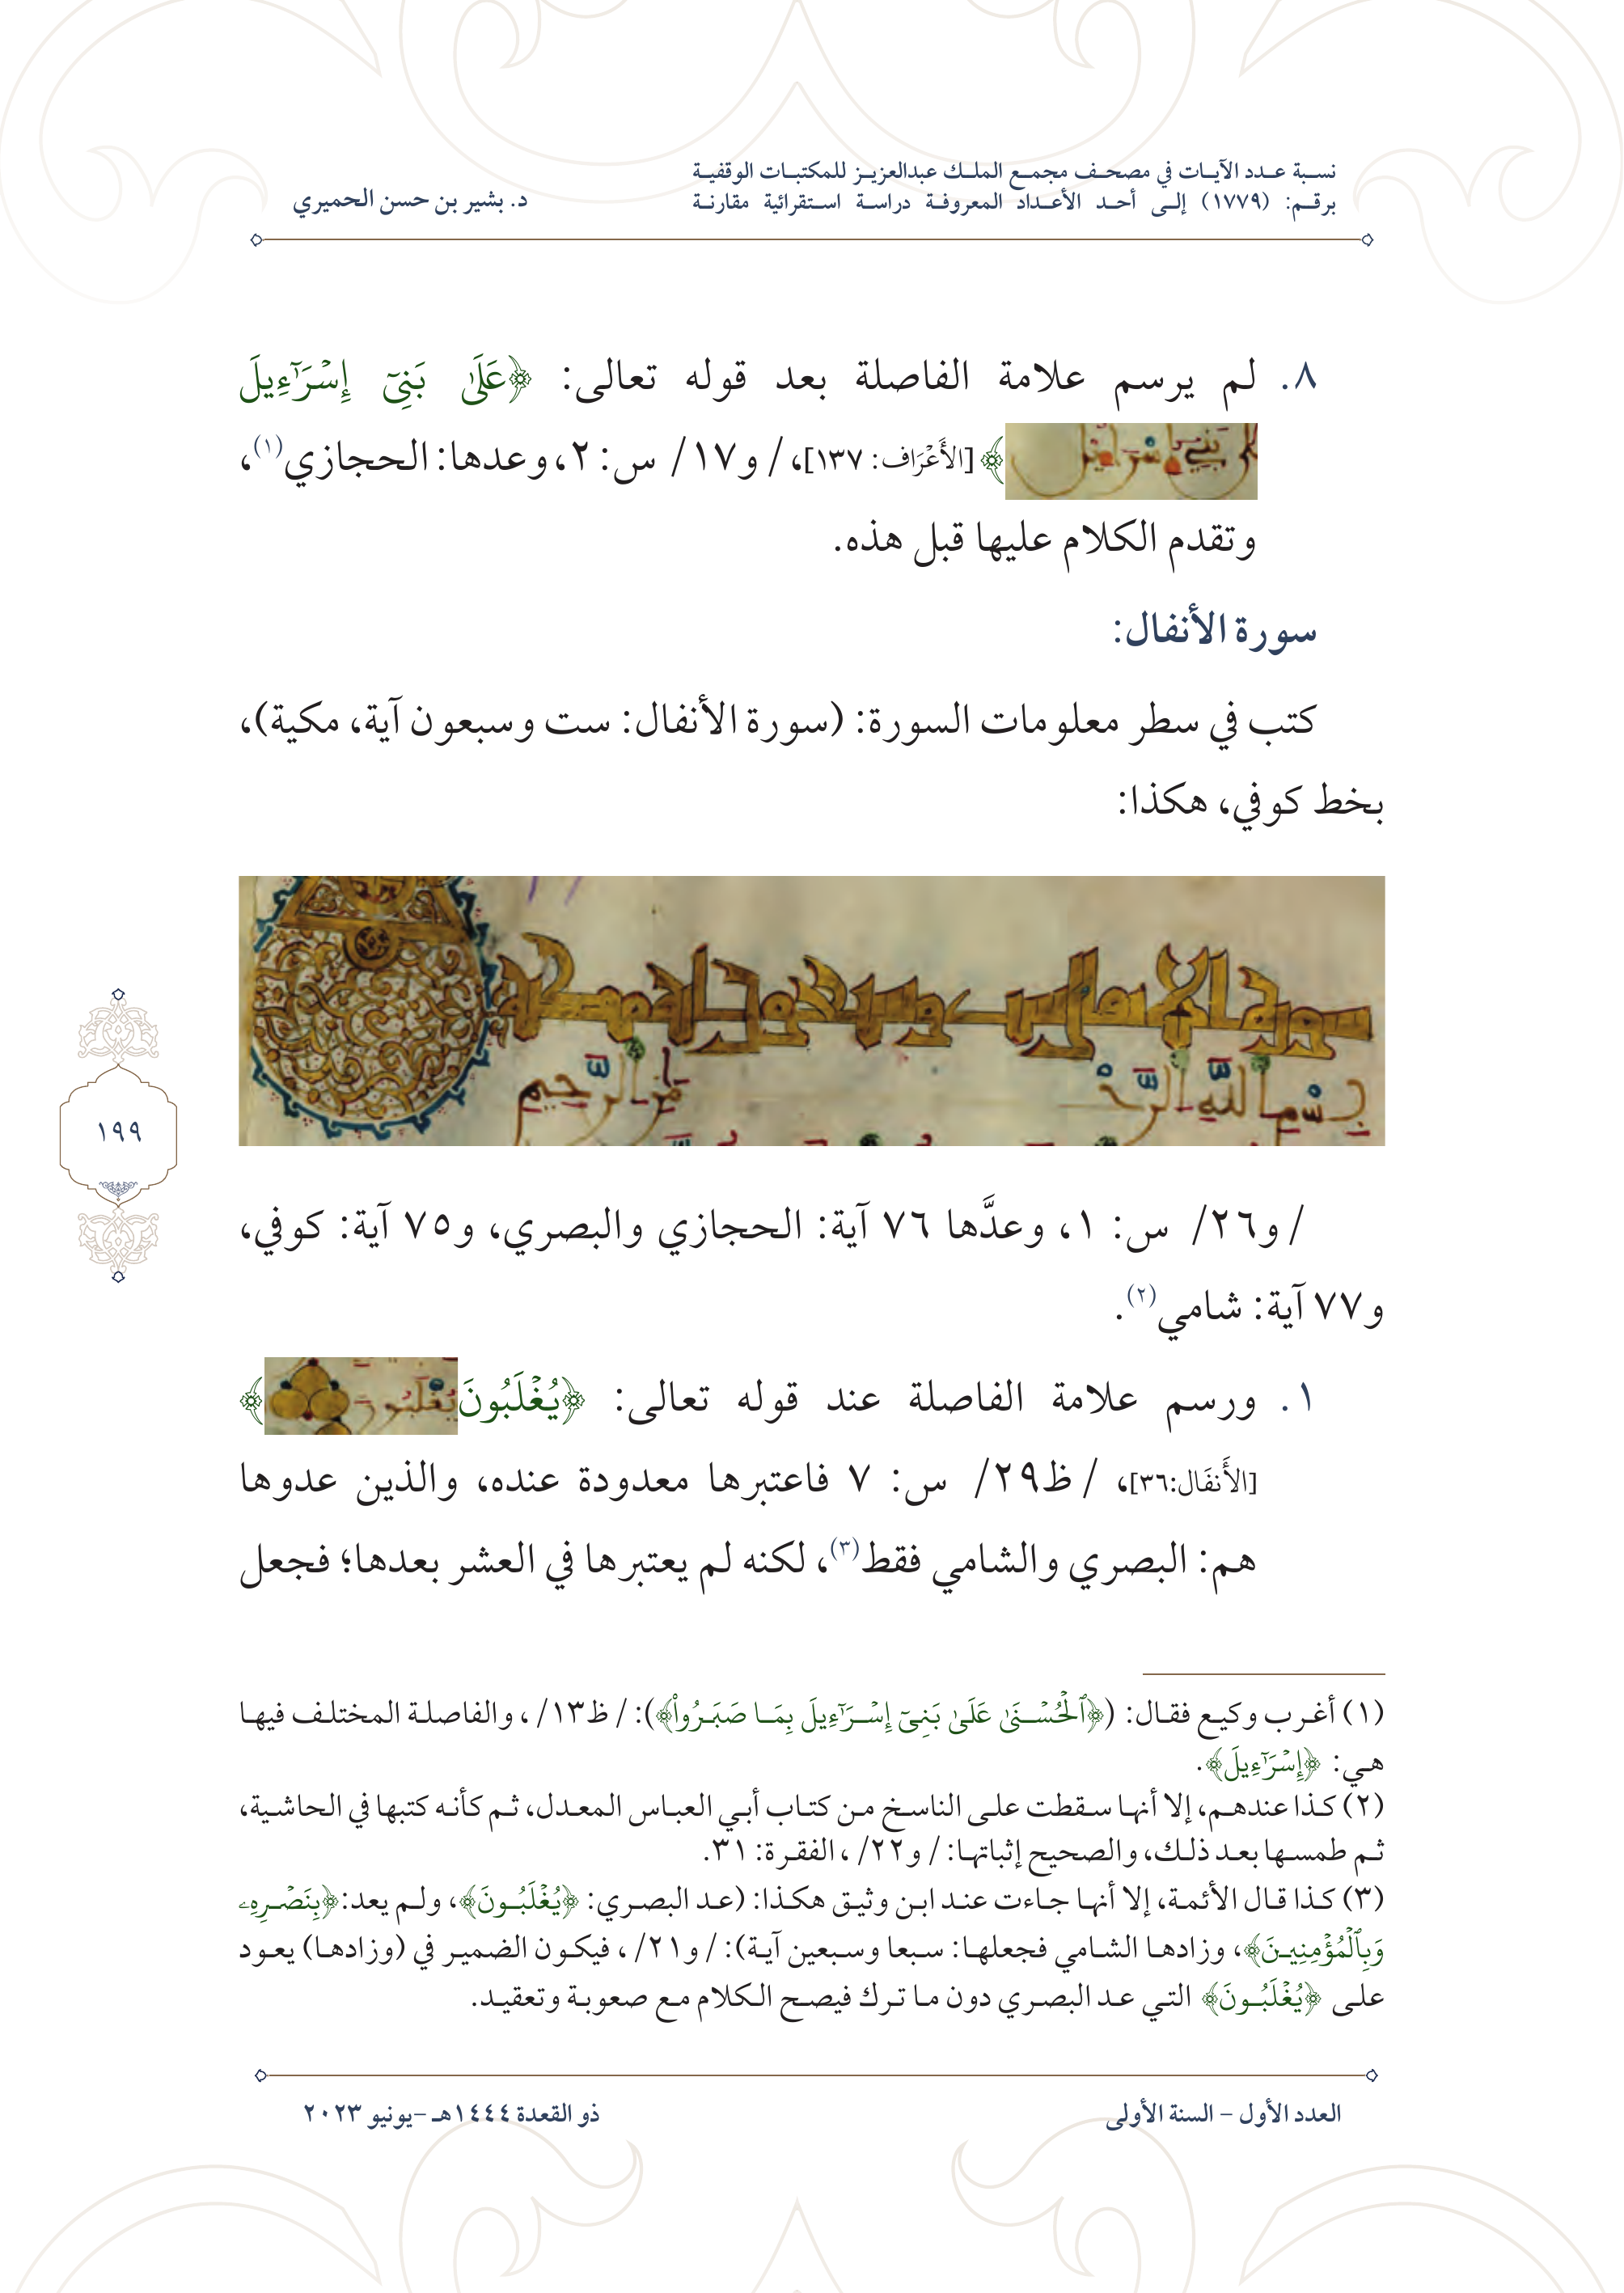 نسبة عدد الآيات في مصحف مجمع الملك عبدالعزيز للمكتبات الوقفية
برقم: (١٧٧٩) إلى أحد الأعداد المعروفة دراسة استقرائية مقارنة
د. بشير بن حسن الحميري
٨. لم يرسم علامة الفاصلة بعد قوله تعالى: ﴿عَلَىٰ بَنِيٓ إِسۡرَـٰٓءِيلَ
بني إسرائيل﴾ [الأَعۡرَاف: ١٣٧]، /و١٧/ س: ٢، وعدها: الحجازي(١)،
وتقدم الكلام عليها قبل هذه.
سورة الأنفال:
كتب في سطر معلومات السورة: (سورة الأنفال: ست وسبعون آية، مكية)،
بخط كوفي، هكذا:
سورة الأنفال ست وسبعون آية مكية
بسم الله الرحمن الرحيم
/و٢٦/ س: ١، وعدَّها ٧٦ آية: الحجازي والبصري، و٧٥ آية: كوفي،
و٧٧ آية: شامي(٢).
١. ورسم علامة الفاصلة عند قوله تعالى: ﴿يُغۡلَبُونَ يغلبون﴾
[الأَنفَال:٣٦]، /ظ٢٩/ س: ٧ فاعتبرها معدودة عنده، والذين عدوها
هم: البصري والشامي فقط(٣)، لكنه لم يعتبرها في العشر بعدها؛ فجعل
١٩٩
(١) أغرب وكيع فقال: (﴿ٱلۡحُسۡنَىٰ عَلَىٰ بَنِيٓ إِسۡرَـٰٓءِيلَ بِمَا صَبَرُواْ﴾): /ظ١٣/، والفاصلة المختلف فيها
هي: ﴿إِسۡرَـٰٓءِيلَ﴾.
(٢) كذا عندهم، إلا أنها سقطت على الناسخ من كتاب أبي العباس المعدل، ثم كأنه كتبها في الحاشية،
ثم طمسها بعد ذلك، والصحيح إثباتها: /و٢٢/، الفقرة: ٣١.
(٣) كذا قال الأئمة، إلا أنها جاءت عند ابن وثيق هكذا: (عد البصري: ﴿يُغۡلَبُونَ﴾، ولم يعد: ﴿بِنَصۡرِهِۦ
وَبِٱلۡمُؤۡمِنِينَ﴾، وزادها الشامي فجعلها: سبعا وسبعين آية): /و٢١/، فيكون الضمير في (وزادها) يعود
على ﴿يُغۡلَبُونَ﴾ التي عد البصري دون ما ترك فيصح الكلام مع صعوبة وتعقيد.
العدد الأول – السنة الأولى
ذو القعدة ١٤٤٤هـ –يونيو ٢٠٢٣